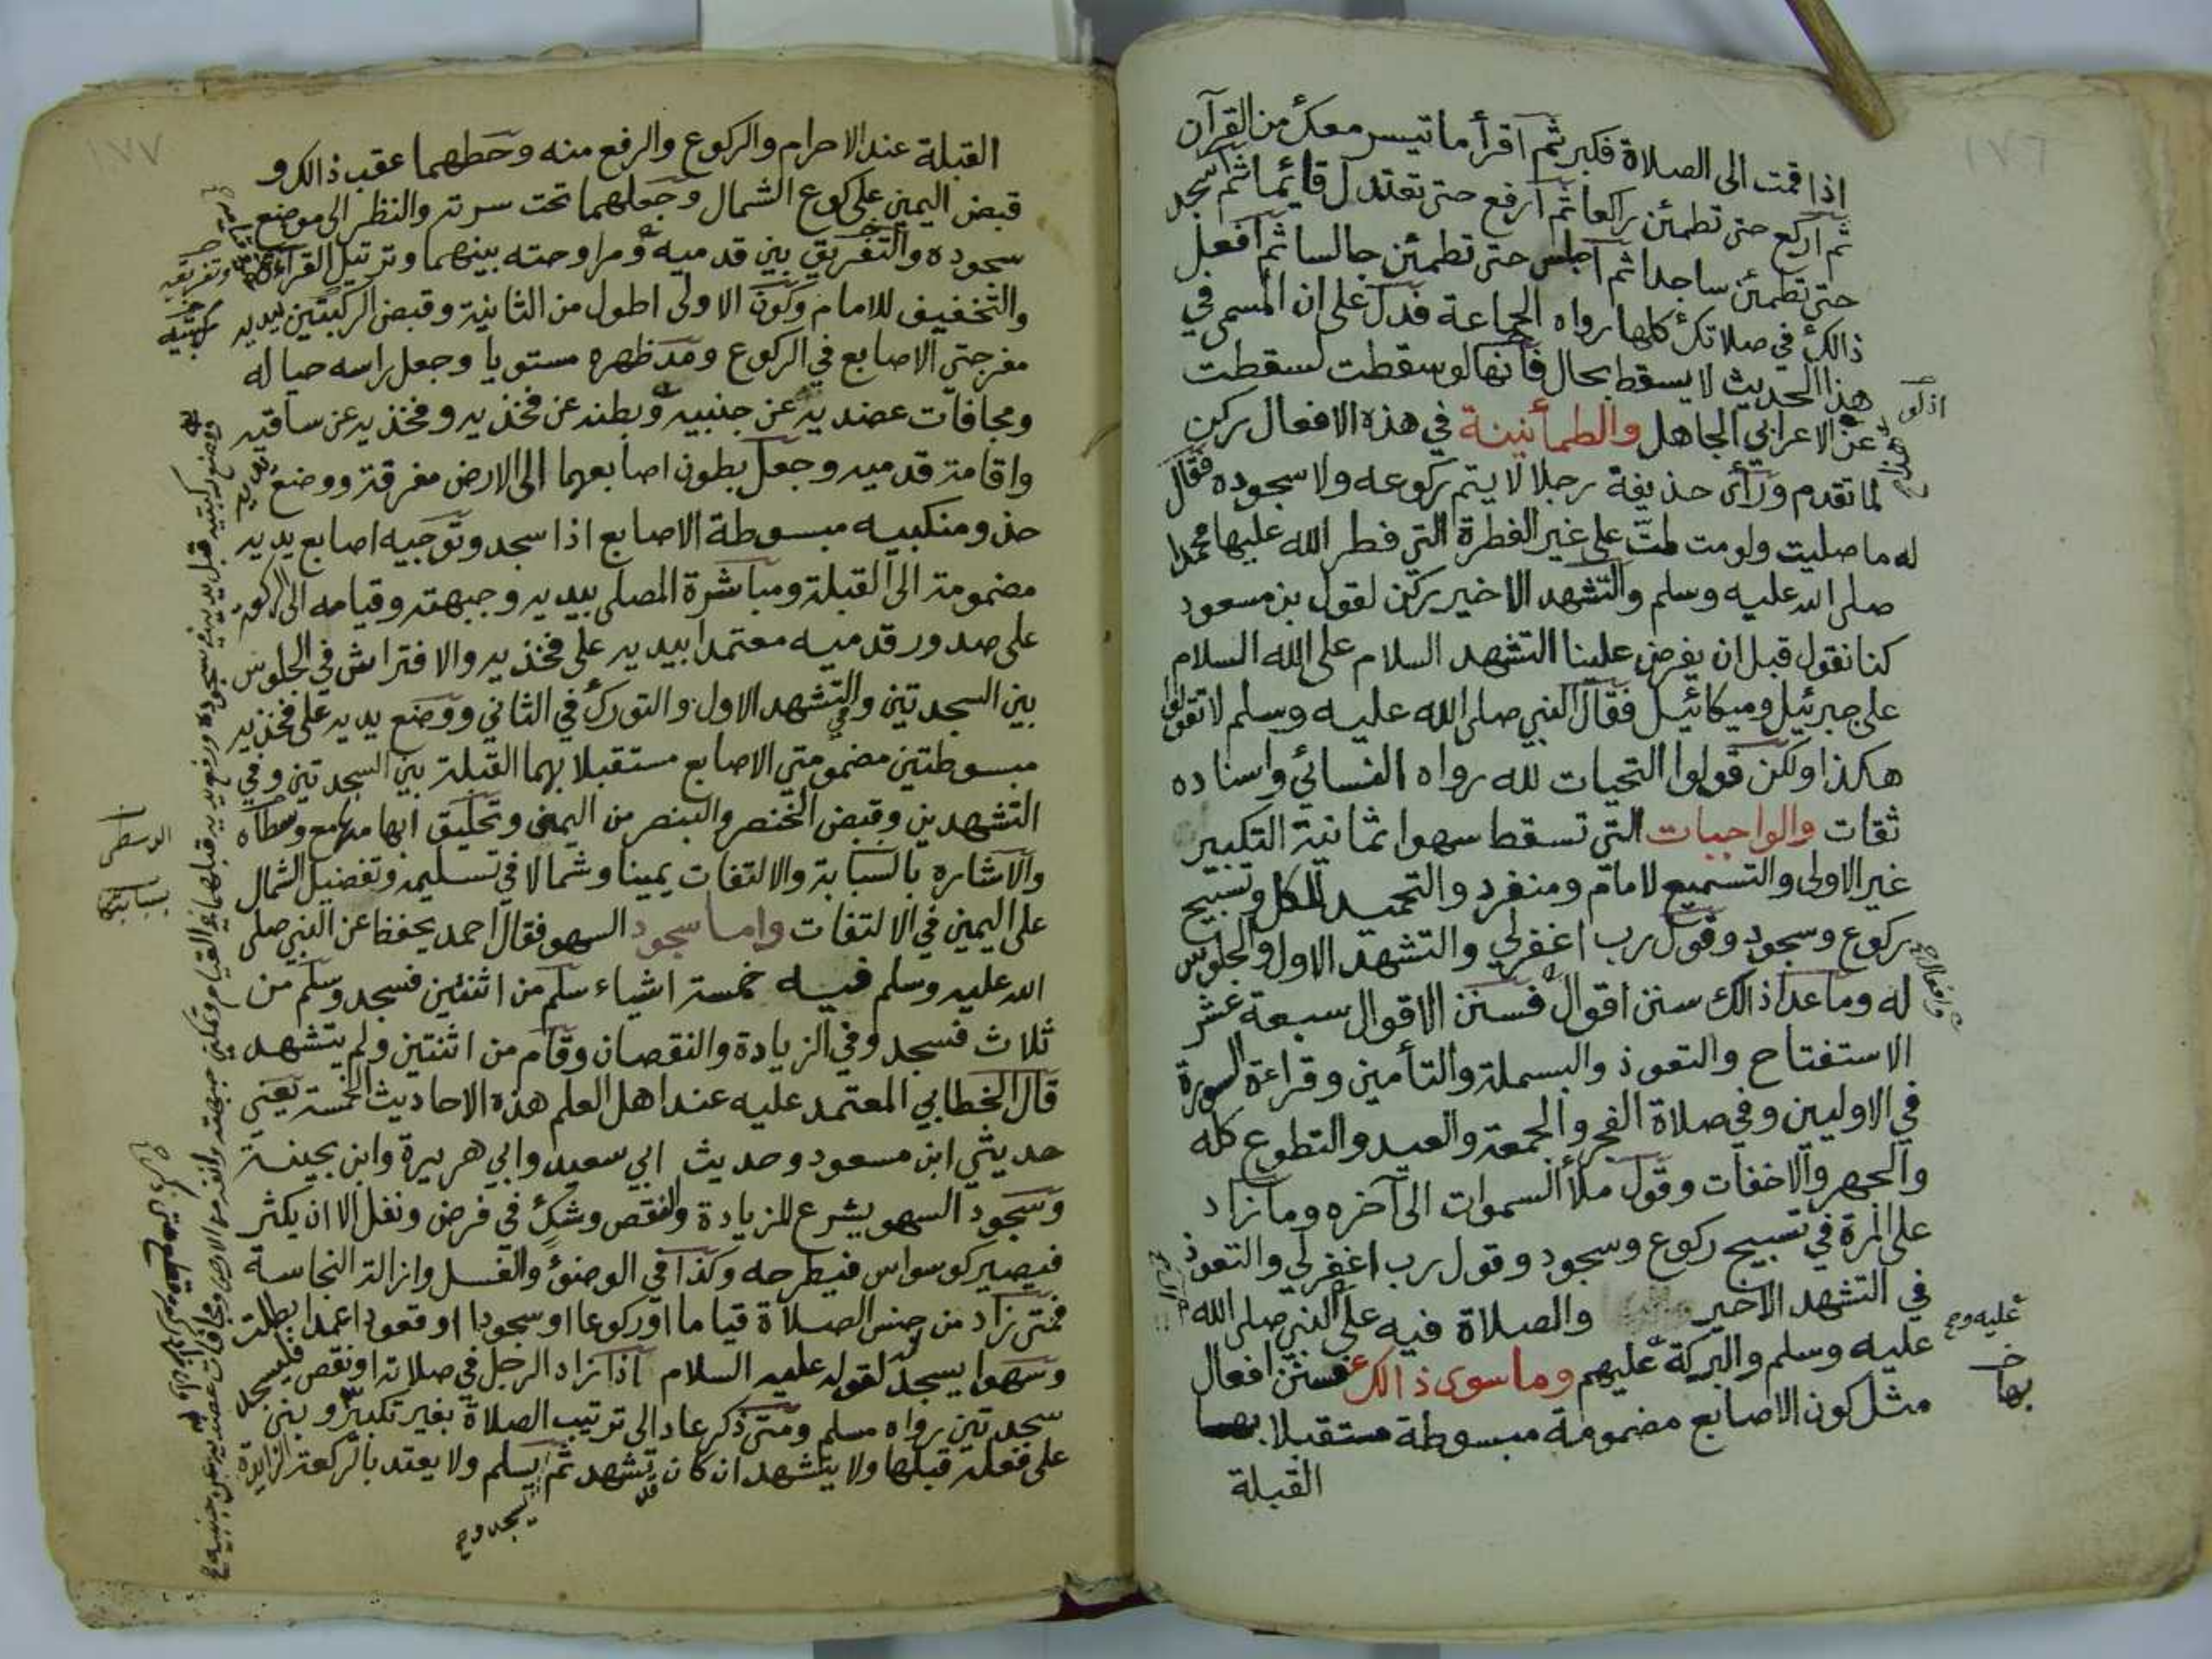 ١٧٦
اذا قمت الى الصلاة فكبر ثم اقرأ ما تيسر معك من القرآن
ثم اركع حتى تطمئن راكعا ثم ارفع حتى تعتدل قائما ثم اسجد
حتى تطمئن ساجدا ثم اجلس حتى تطمئن جالسا ثم افعل
ذالك في صلاتك كلها رواه الجماعة فدل على ان المسمى في
هذا الحديث لا يسقط بحال فانها لو سقطت لسقطت
عن الاعرابي الجاهل والطمأنينة في هذه الافعال ركن
لما تقدم ورأى حذيفة رجلا لا يتم ركوعه ولا سجوده فقال
له ما صليت ولو مت لمت على غير الفطرة التي فطر الله عليها محمدا
صلى الله عليه وسلم والتشهد الاخير ركن لقول بن مسعود
كنا نقول قبل ان يفرض علينا التشهد السلام على الله السلام
على جبرئيل وميكائيل فقال النبي صلى الله عليه وسلم لا تقولوا
هكذا ولكن قولوا التحيات لله رواه النسائي واسناده
ثقات والواجبات التي تسقط سهوا ثمانية التكبير
غير الاولى والتسميع لامام ومنفرد والتحميد للكل وتسبيح
ركوع وسجود وقول رب اغفر لي والتشهد الاول والجلوس
له وما عدا ذالك سنن اقوال فسنن الاقوال سبعة عشر
الاستفتاح والتعوذ والبسملة والتأمين وقراءة السورة
في الاوليين وفي صلاة الفجر والجمعة والعيد والتطوع كله
والجهر والاخفات وقول ملأ السموات الى آخره وما زاد
على المرة في تسبيح ركوع وسجود وقول رب اغفر لي والتعوذ
في التشهد الاخير والصلاة فيه على النبي صلى الله
عليه وسلم والبركة عليهم وما سوى ذالك فسنن افعال
مثل كون الاصابع مضمومة مبسوطة مستقبلا بهما
القبلة
وافعال
بها
١٧٧
القبلة عند الاحرام والركوع والرفع منه وحطهما عقب ذالك و
قبض اليمين على كوع الشمال وجعلهما تحت سرته والنظر الى موضع
سجوده والتفريق بين قدميه ومراوحته بينهما وترتيل القراءة
والتخفيف للامام وكون الاولى اطول من الثانية وقبض الركبتين بيديه
مفرجتي الاصابع في الركوع ومد ظهره مستويا وجعل راسه حياله
ومجافات عضديه عن جنبيه وبطنه عن فخذيه وفخذيه عن ساقيه
واقامة قدميه وجعل بطون اصابعهما الى الارض مفرقة ووضع يديه
حذو منكبيه مبسوطة الاصابع اذا سجد وتوجيه اصابع يديه
مضمومة الى القبلة ومباشرة المصلى بيديه وجبهته وقيامه الى الركعة
على صدور قدميه معتمدا بيديه على فخذيه والافتراش في الجلوس
بين السجدتين والتشهد الاول والتورك في الثاني ووضع يديه على فخذيه
مبسوطتين مضمومتي الاصابع مستقبلا بهما القبلة بين السجدتين وفي
التشهدين وقبض الخنصر والبنصر من اليمنى وتحليق ابهامها مع وسطاه
والاشاره بالسبابة والالتفات يمينا وشمالا في تسليمه وتفضيل الشمال
على اليمين في الالتفات واما سجود السهو فقال احمد يحفظ عن النبي صلى
الله عليه وسلم فيه خمسة اشياء سلم من اثنتين فسجد وسلم من
ثلاث فسجد وفي الزيادة والنقصان وقام من اثنتين ولم يتشهد
قال الخطابي المعتمد عليه عند اهل العلم هذه الاحاديث الخمسة يعني
حديثي ابن مسعود وحديث ابي سعيد وابي هريرة وابن بحينة
وسجود السهو يشرع للزيادة والنقص وشك في فرض ونفل الا ان يكثر
فيصير كوسواس فيطرحه وكذا في الوضوء والغسل وازالة النجاسة
فمتى زاد من جنس الصلاة قياما او ركوعا او سجودا او قعودا عمدا بطلت
وسهوا يسجد لقوله عليه السلام اذا زاد الرجل في صلاته او نقص فليسجد
سجدتين رواه مسلم ومتى ذكر عاد الى ترتيب الصلاة بغير تكبير وبنى
على فعله قبلها ولا يتشهد ان كان تشهد ثم يسلم ولا يعتد بالركعة الزايدة
الوسطى